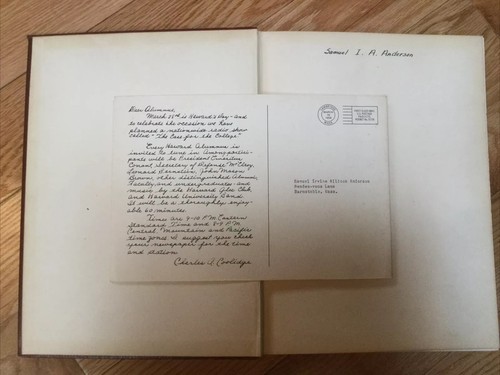 Samuel I. A. Anderson
Dear Alumnus
March 18th is Harvard's Day - and
to celebrate the occasion we have
planned a nationwide radio show
called "The Case for the College"
Every Harvard Alumnus is
invited to tune in. Among partici-
pants will be President Quincy
Conant, Secretary of Defense McElroy,
Leonard Bernstein, John Mason
Brown, other distinguished Alumni,
Faculty and undergraduates - and
music by the Harvard Glee Club
and Harvard University Band
It will be a thoroughly enjoy-
able 60 minutes
Times are 9-10 P.M. Eastern
Standard Time and 8-9 P.M.
Central, Mountain and Pacific
time zones. I suggest you check
your newspaper for the time
and station
Charles A. Coolidge
Samuel Irving Anderson
Lane
Barnstable, Mass.